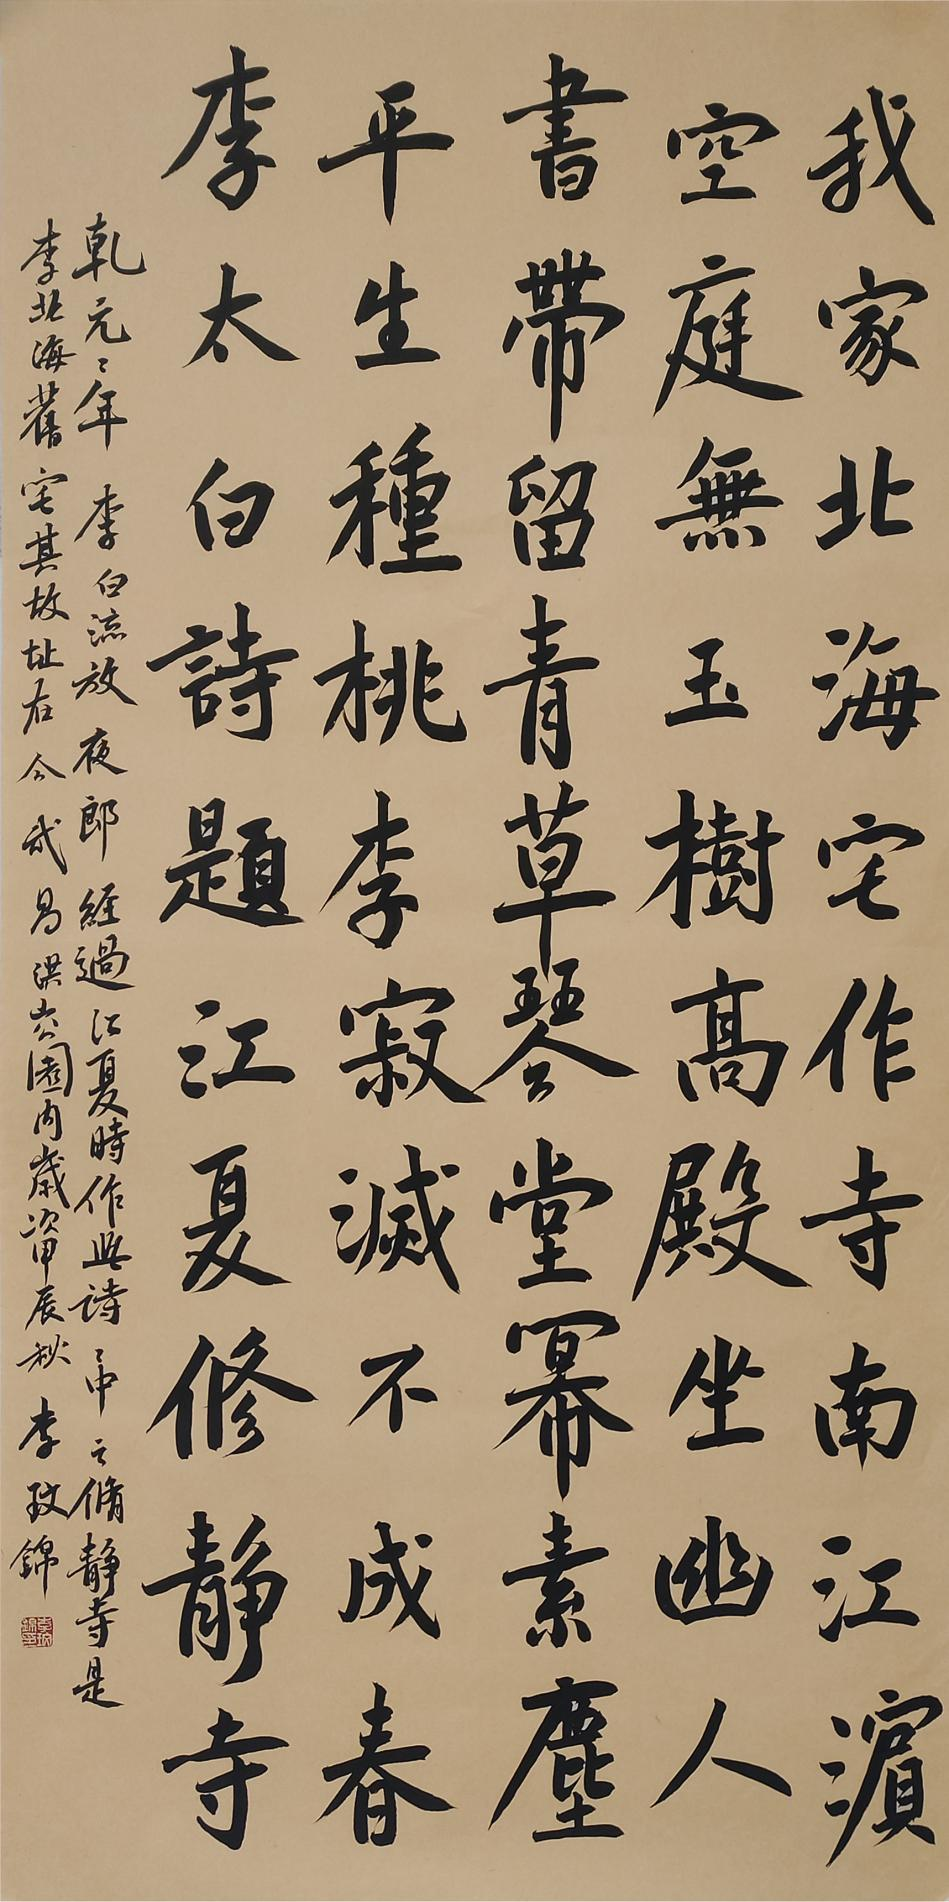 我家北海宅作寺南江濵
空庭無玉樹高殿坐幽人
書帶留青草琴堂冪素塵
平生種桃李寂滅不成春
李太白詩題江夏修靜寺
乾元二年李白流放夜郎經過江夏時作此詩詩中之脩靜寺是
李北海舊宅其故址在今武昌洪山公園内歲次甲辰秋李玟錦